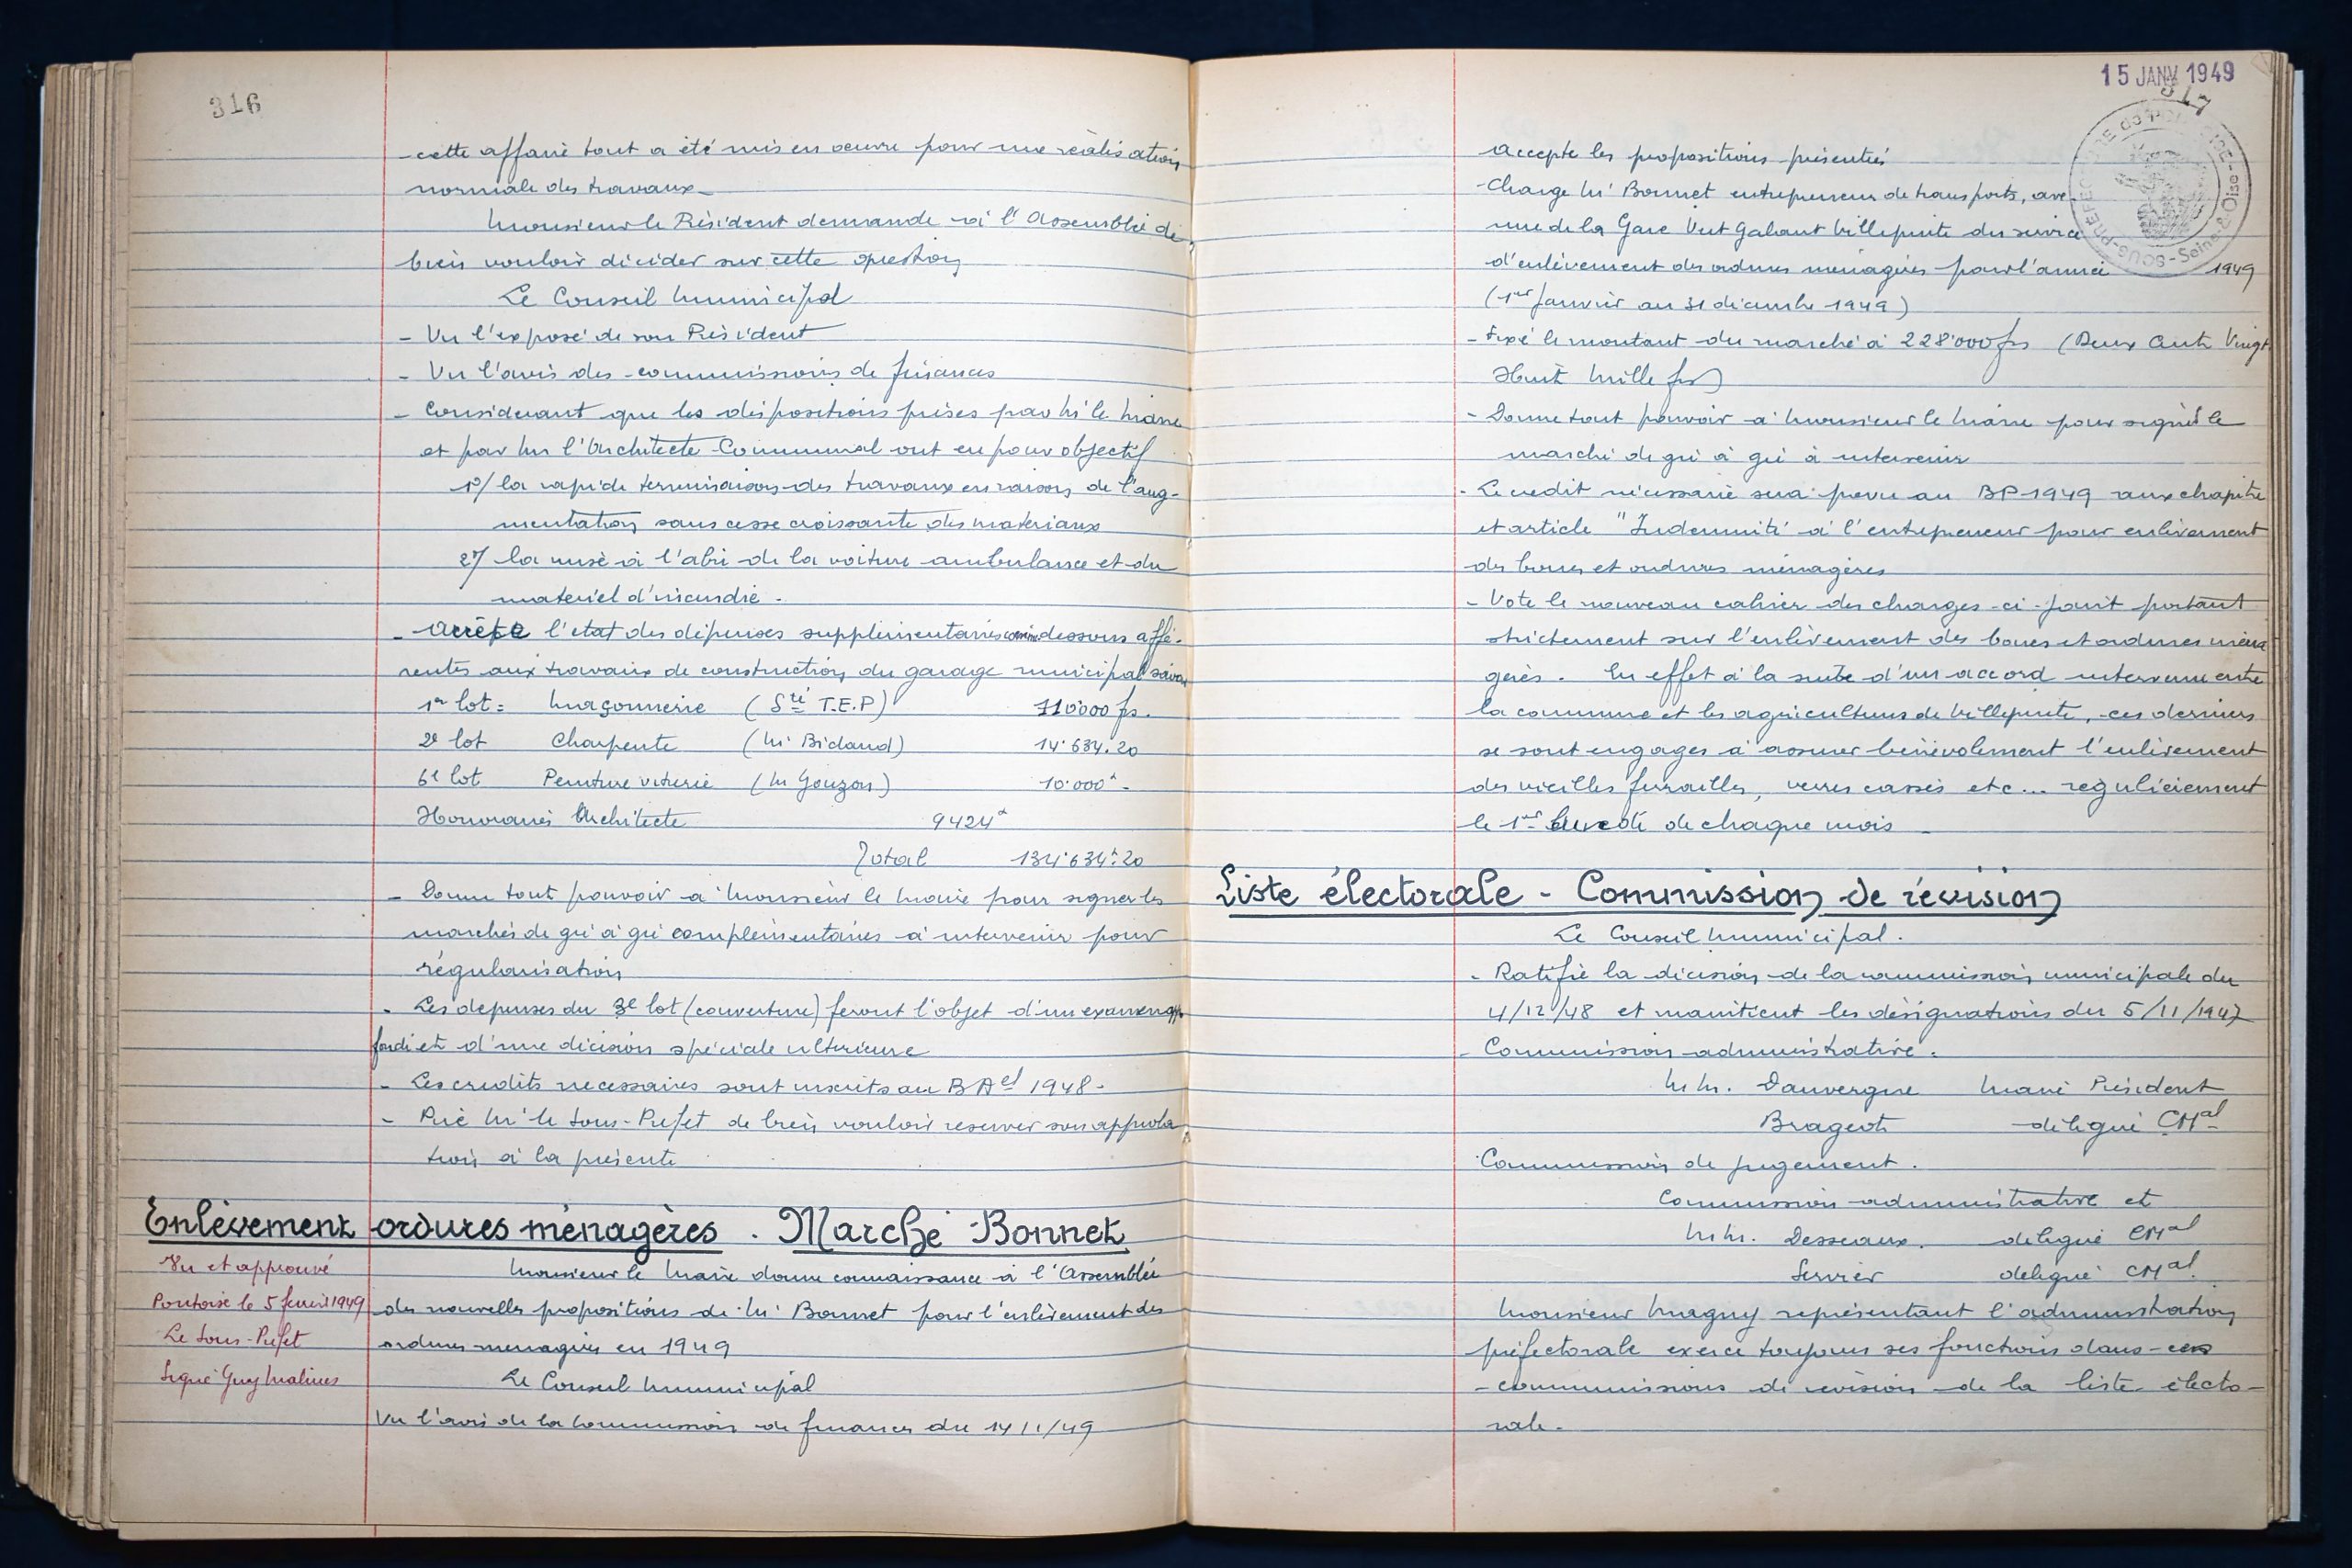 316
cette affaire tout a été mis en oeuvre pour une réalisation
normale des travaux
Monsieur le Président demande à l'Assemblée de
bien vouloir décider sur cette question
Le Conseil Municipal
- Vu l'exposé de son Président
- Vu l'avis des commissions de finances
- Considerant que les dispositions prises par Mr le Maire
et par Mr l'Architecte Communal ont eu pour objectif
1°/ la rapide terminaison des travaux en raison de l'aug-
mentation sans cesse croissante des materiaux
2°/ la mise à l'abri de la voiture ambulance et du
materiel d'incendie.
- Arrête l'etat des dépenses supplémentaires comme dessous affé-
rentes aux travaux de construction du garage municipal savoir
1er lot = Maçonnerie (Sté T.E.P) 110'000 frs.
2e lot Charpente (Mr Bidaud) 14'634.20
6e lot Peinture vitrerie (Mr Gouzon) 10'000 -
Honoraires Architecte 9424
Total 134'634.20
- Donne tout pouvoir à Monsieur le Maire pour signer les
marchés de gré à gré complémentaires à intervenir pour
régularisation
- Les depenses du 3e lot (couverture) feront l'objet d'un examen appro
fondi et d'une décision spéciale ulterieure
- Les credits necessaires sont inscrits au BAel 1948.
- Prie Mr le Sous-Prefet de bien vouloir reserver son approba
tion à la présente
Enlèvement ordures ménagères. Marché Bonnet
Vu et approuvé
Pontoise le 5 fevrier 1949
Le Sous-Prefet
Signé Guy Malines
Monsieur le Maire donne connaissance à l'Assemblée
des nouvelles propositions de Mr Bonnet pour l'enlèvement des
ordures menagères en 1949
Le Conseil Municipal
Vu l'avis de la Commission de finances du 14/1/49
15 JANV 1949
317
SOUS-PRÉFECTURE de PONTOISE - Seine-&-Oise -
Accepte les propositions présentées
- Charge Mr Bonnet entrepreneur de transports, ave-
nue de la Gare Vert Galant Villepinte du service
d'enlèvement des ordures menagères pour l'année 1949
(1er Janvier au 31 décembre 1949)
- Fixe le montant du marché à 228'000 frs (Deux Cent Vingt
Huit Mille frs)
- Donne tout pouvoir à Monsieur le Maire pour signer le
marché de gré à gré à intervenir
- Le credit nécessaire sera prevu au BP 1949 aux chapitre
et article "Indemnité à l'entrepreneur pour enlèvement
des boues et ordures ménagères
- Vote le nouveau cahier des charges ci-joint portant
strictement sur l'enlèvement des boues et ordures ména
gères. En effet à la suite d'un accord intervenu entre
la commune et les agriculteurs de Villepinte, ces derniers
se sont engagés à assurer bénévolement l'enlèvement
des vieilles ferrailles, verres cassés etc... régulièrement
le 1er de chaque mois
Liste électorale - Commission de révision
Le Conseil Municipal.
- Ratifie la décision de la commission municipale du
4/12/48 et maintient les désignations du 5/11/1947
- Commission administrative.
MM. Dauvergne Maire Président
Brageot délégué CMal
Commission de jugement.
Commission administrative et
MM. Desseaux. délégué CMal
Servier délégué CMal.
Monsieur Magny représentant l'administration
préfectorale exerce toujours ses fonctions dans ces
commissions de révision de la liste électo-
rale.